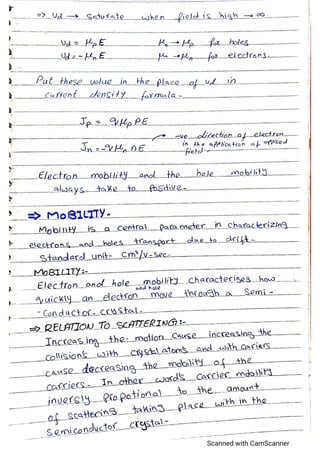 => Vd → Saturate when field is high → ∞
Vd = μp E    μ → μp for holes
Vd = - μn E    μ → μn for electrons.
Put these value in the place of vd in
current density formula -
Jp = qμp PE
Jn = -qμn nE → -ve direction of electron
in the application of applied
field.
Electron mobility and the hole mobility
always take to Positive.
=> MOBILITY -
Mobility is a central parameter in characterizing
electrons and holes transport due to drift.
Standard unit - cm²/v-sec.
MOBILITY :-
Electron and hole mobility characterises how
quickly an electron and hole move through a Semi -
- Conductor. crystal -
=> RELATION TO SCATTERING :-
Increasing the motion cause increasing the
collisions with crystal atoms and with cariers
cause decreasing the mobility of the
carriers. In other words carrier mobility
inversly propotional to the amount
of scattering taking place with in the
semiconductor crystal -
Scanned with CamScanner